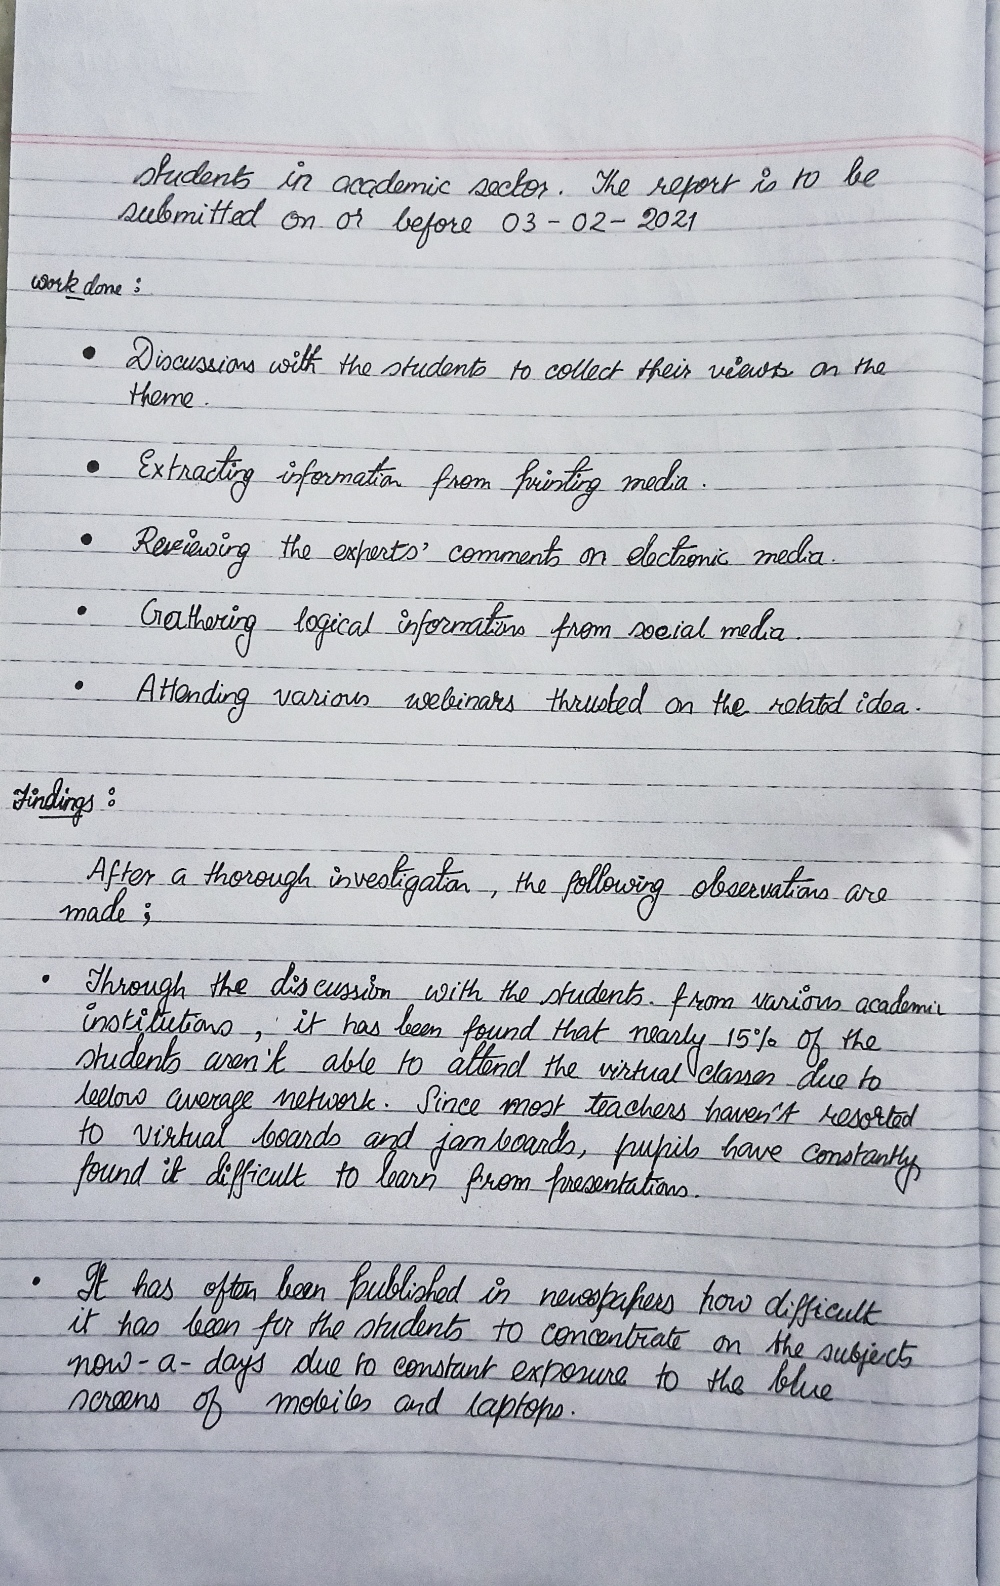 students in academic sector. The report is to be
submitted on or before 03-02-2021
work done :
• Discussions with the students to collect their views on the
theme.
• Extracting information from printing media.
• Reviewing the experts' comments on electronic media.
• Gathering logical informations from social media.
• Attending various webinars thrusted on the related idea.
Findings :
After a thorough investigation, the following observations are
made ;
• Through the discussion with the students. from various academic
institutions, it has been found that nearly 15% of the
students aren't able to attend the virtual classes due to
below average network. Since most teachers haven't resorted
to virtual boards and jamboards, pupils have constantly
found it difficult to learn from presentations.
• It has often been published in newspapers how difficult
it has been for the students to concentrate on the subjects
now-a-days due to constant exposure to the blue
screens of mobiles and laptops.